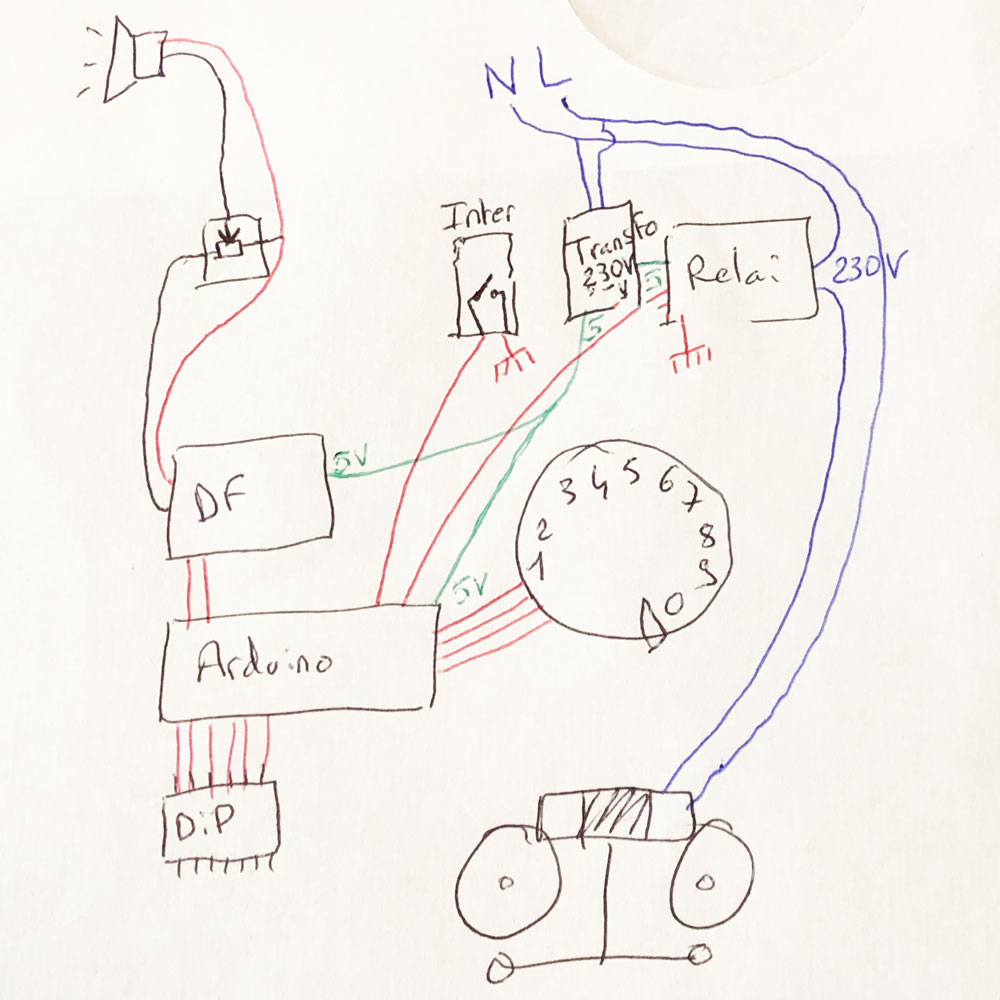 N L
Inter
Transfo
230V
5
Relai
230V
5
DF
5V
1 2 3 4 5 6 7 8 9 0
5V
Arduino
DiP